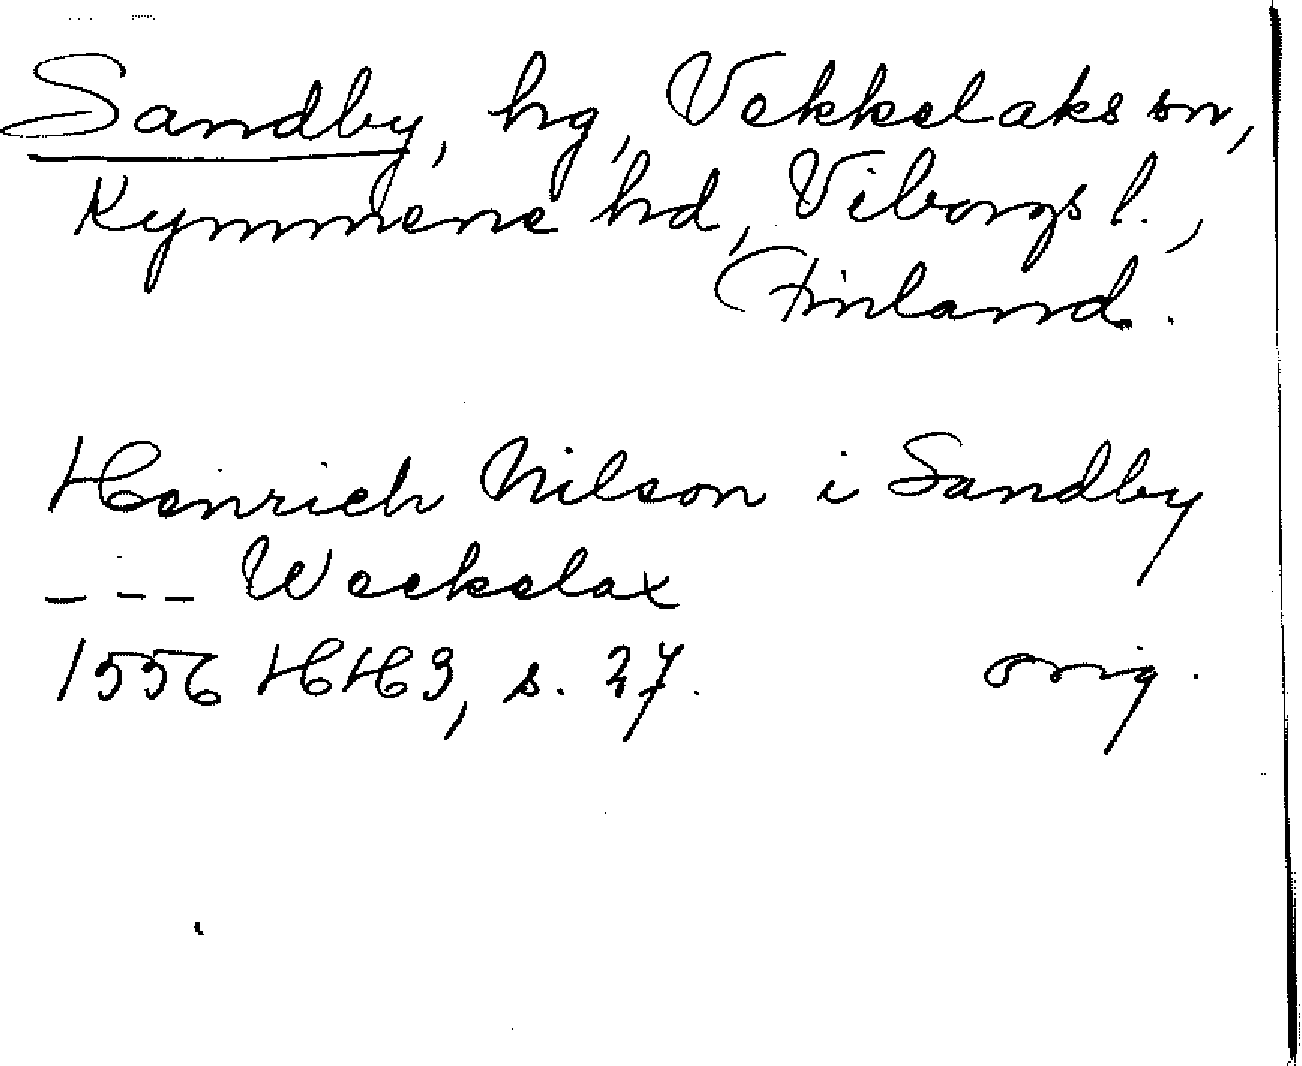 Sandby, hg, Vekkelaks sn,
Kymmene hd, Viborgs l.,
Finland.
Henrich Nilson i Sandby
--- Weckelax
1556 HH3, s. 27.
orig.